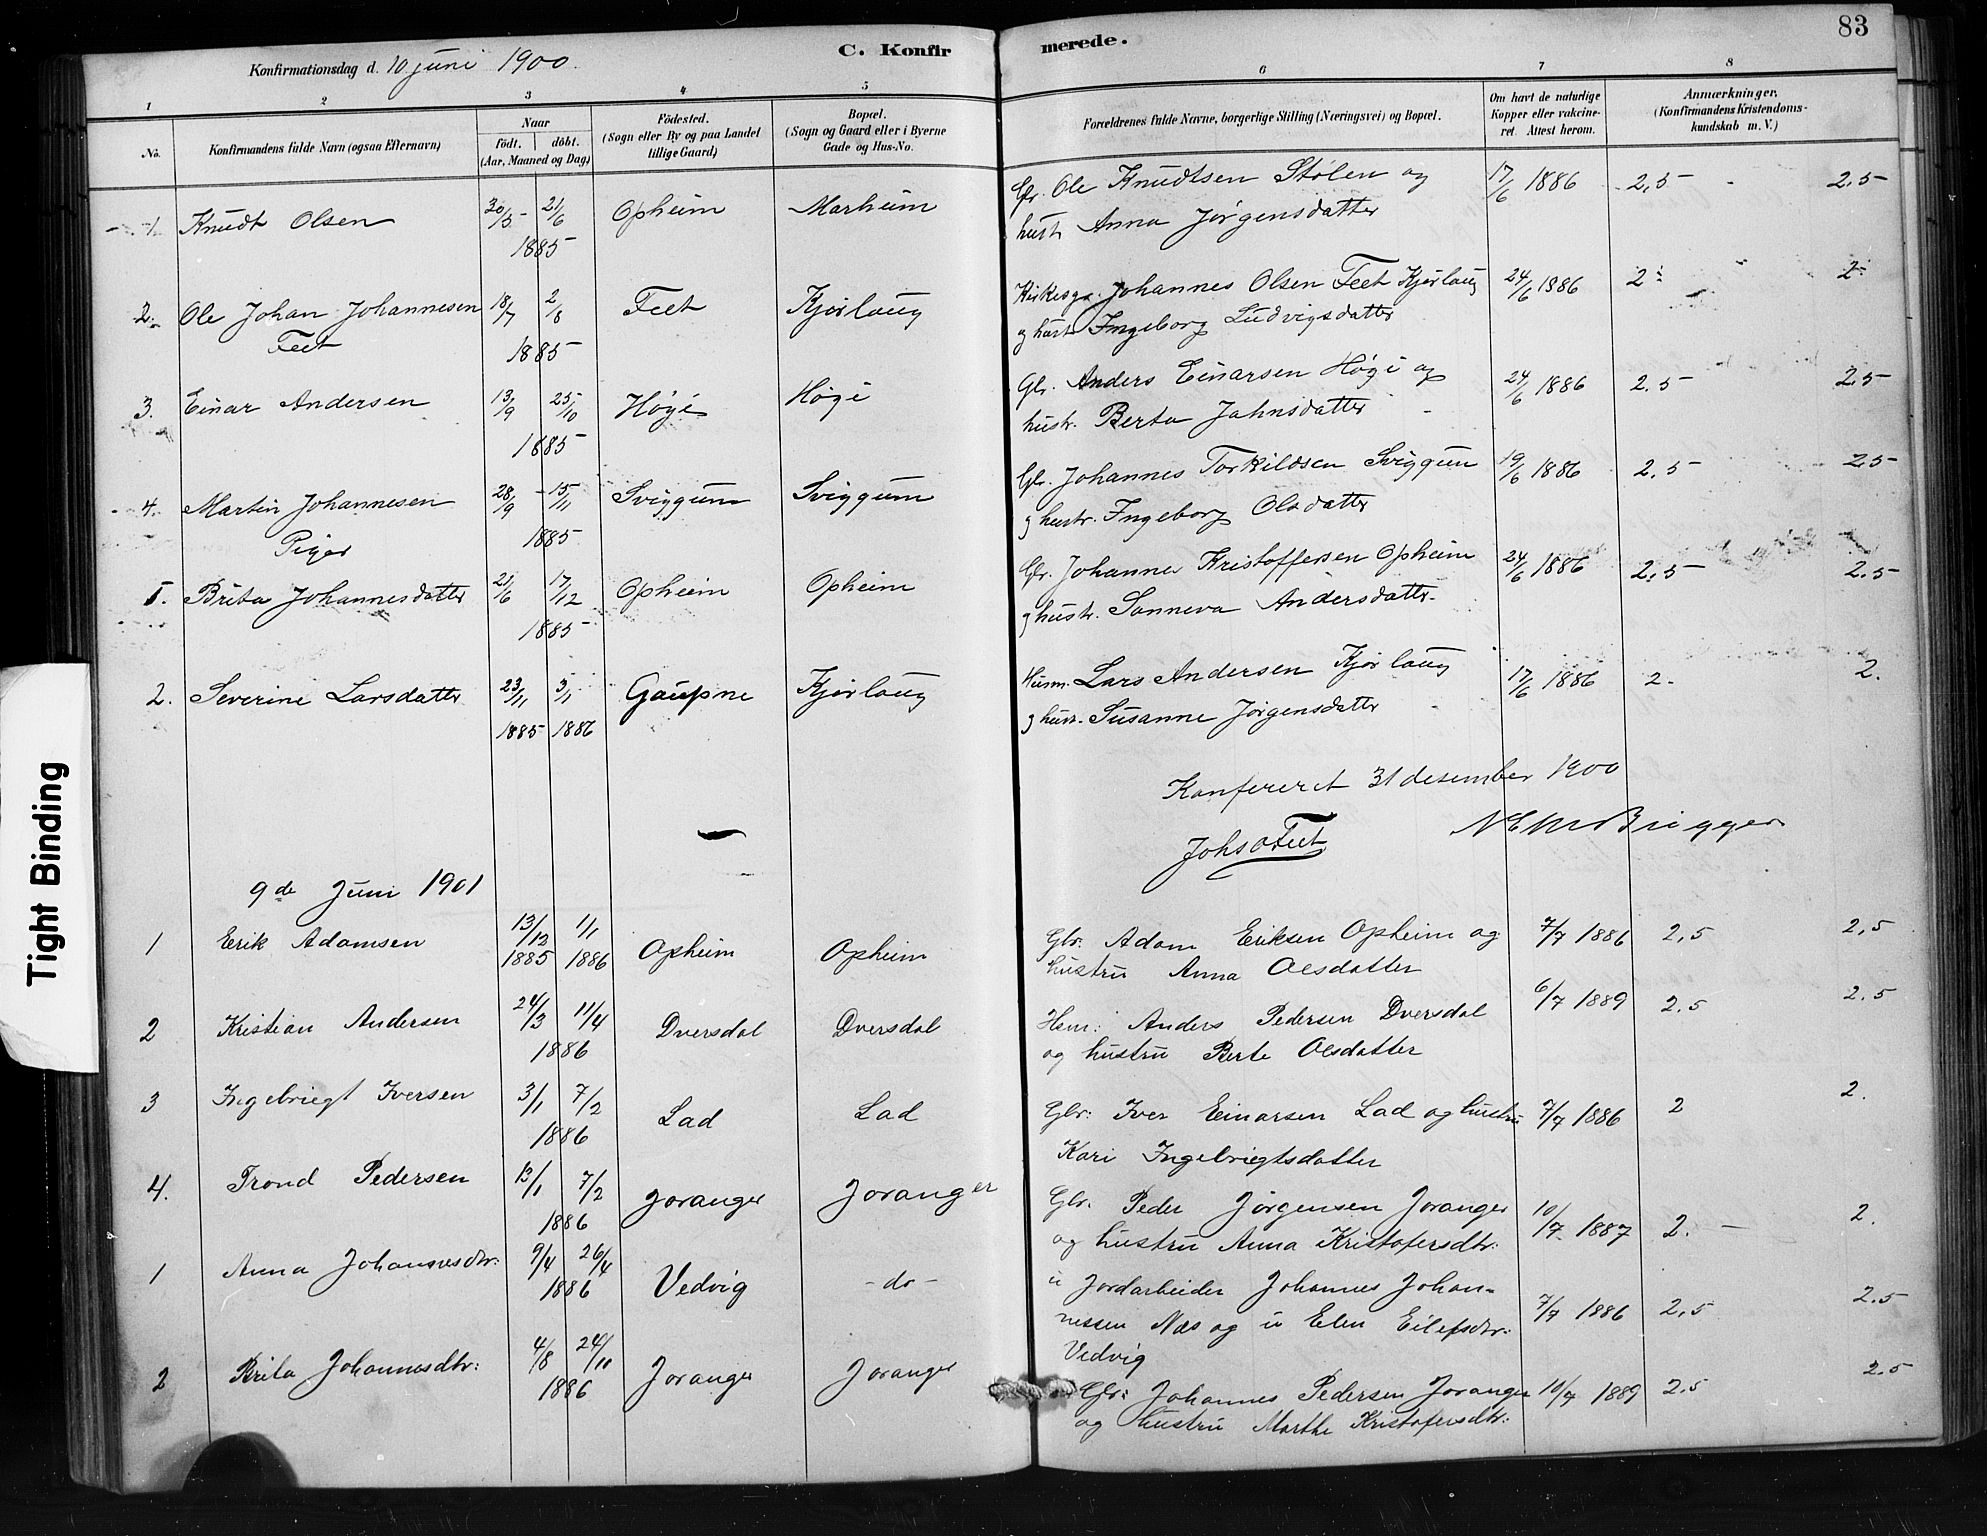 83
C. Konfirmerede.
Konfirmationsdag d. 10 juni 1900.
1 2 3 4 5 6 7 8
No.
Konfirmandens fulde Navn (ogsaa Efternavn)
Naar
født. døbt.
(Aar, Maaned og Dag)
Fødested.
(Sogn eller By og paa Landet
tillige Gaard)
Bopæl.
(Sogn og Gaard eller i Byerne
Gade og Hus-No.
Forældrenes fulde Navne, borgerlige Stilling (Næringsvei) og Bopæl.
Om havt de naturlige
Kopper eller vakcine-
ret. Attest herom.
Anmærkninger.
(Konfirmandens Kristendoms-
kundskab m. V.)
1. Knudt Olsen 30/5 21/6 Opheim Marheim Gr. Ole Knudtsen Stølen og 17/6 1886 2,5 2.5
1885 hust. Anna Jørgensdatter
2. Ole Johan Johannesen 18/7 2/8 Feet Kjørlaug Kirkesgr. Johannes Olsen Feet Kjørlaug 24/6 1886 2 2
Feet 1885 og hust. Ingeborg Ludvigsdatter
3. Einar Andersen 13/9 25/10 Høgi Høgi Gbr. Anders Einarsen Høgi og 24/6 1886 2.5 2.5
1885 hustr. Berta Jahnsdatter
4. Martin Johannesen 28/9 15/11 Sviggum Sviggum Gbr. Johannes Torkildsen Sviggum 19/6 1886 2.5 2.5
1885 og hustr. Ingeborg Olsdatter
Piger
1. Brita Johannesdatter 21/6 17/12 Opheim Opheim Gbr. Johannes Kristoffersen Opheim 24/6 1886 2.5 2.5
1885 og hustr. Sanneva Andersdattr.
2. Severine Larsdatter 23/11 3/1 Gaupne Kjørlaug Husm. Lars Andersen Kjørlaug 17/6 1886 2. 2.
1885 1886 og hustr. Susanne Jørgensdatter
Konfereret 31 desember 1900
Johs O Feet Brigger
9de Juni 1901
1 Erik Adamsen 13/12 1885 1/1 1886 Opheim Opheim Gbr. Adam Eriksen Opheim og 7/7 1886 2,5 2,5
hustru Anna Olsdatter
2 Kristian Andersen 24/3 11/4 Dversdal Dversdal Hsm: Anders Pedersen Dversdal 6/7 1889 2.5 2.5
1886 og hustru Berte Olsdatter
3 Ingebrigt Iversen 3/1 7/2 Lad Lad Gbr: Iver Einarsen Lad og hustru 7/7 1886 2 2.
1886 Kari Ingebrigtsdatter
4. Trond Pedersen 12/1 7/2 Joranger Joranger Gbr. Peder Jørgensen Joranger 10/7 1887 2. 2.
1886 og hustru Anna Kristofersdtr:
1 Anna Johannesdtr: 9/4 26/4 Vedvig - do - u Jordarbeider Johannes Johan-
1886 nessen Næs og u Elen Eilefsdtr: 7/7 1886 2,5 2.5
Vedvig
2 Brita Johannesdtr: 4/8 24/10 Joranger Joranger Gbr: Johannes Pedersen Joranger 10/7 1889 2.5 2.5
1886 og hustru Marthe Kristofersdtr:
Tight Binding